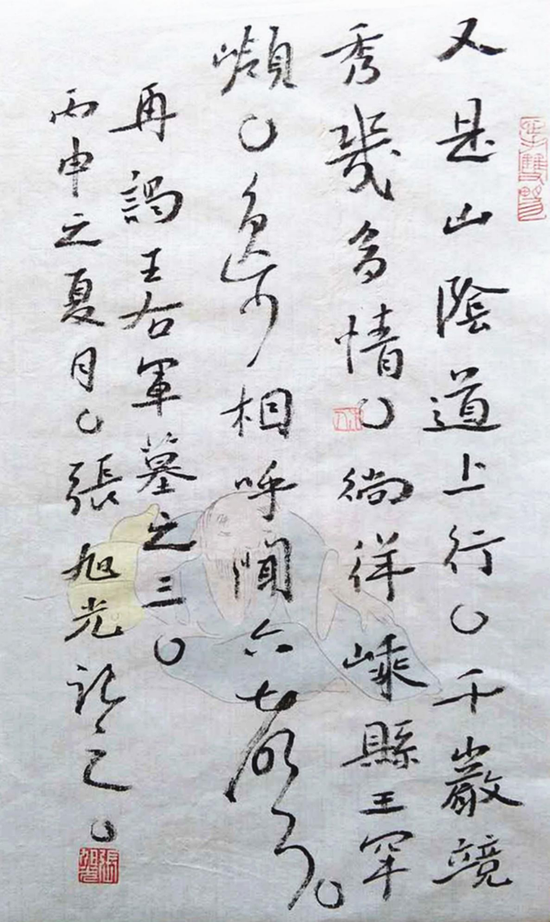 又是山陰道上行。千巖競
秀幾多情。徜徉嵊縣王罕
嶺。相呼六七
再謁王右軍墓之三。
丙申之夏月。張旭光記之。